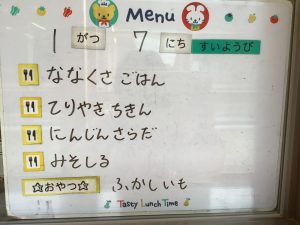 Menu
1 がつ 7 にち すいようび
ななくさ ごはん
てりやき ちきん
にんじん さらだ
みそしる
☆おやつ☆ ふかし いも
Tasty Lunch Time